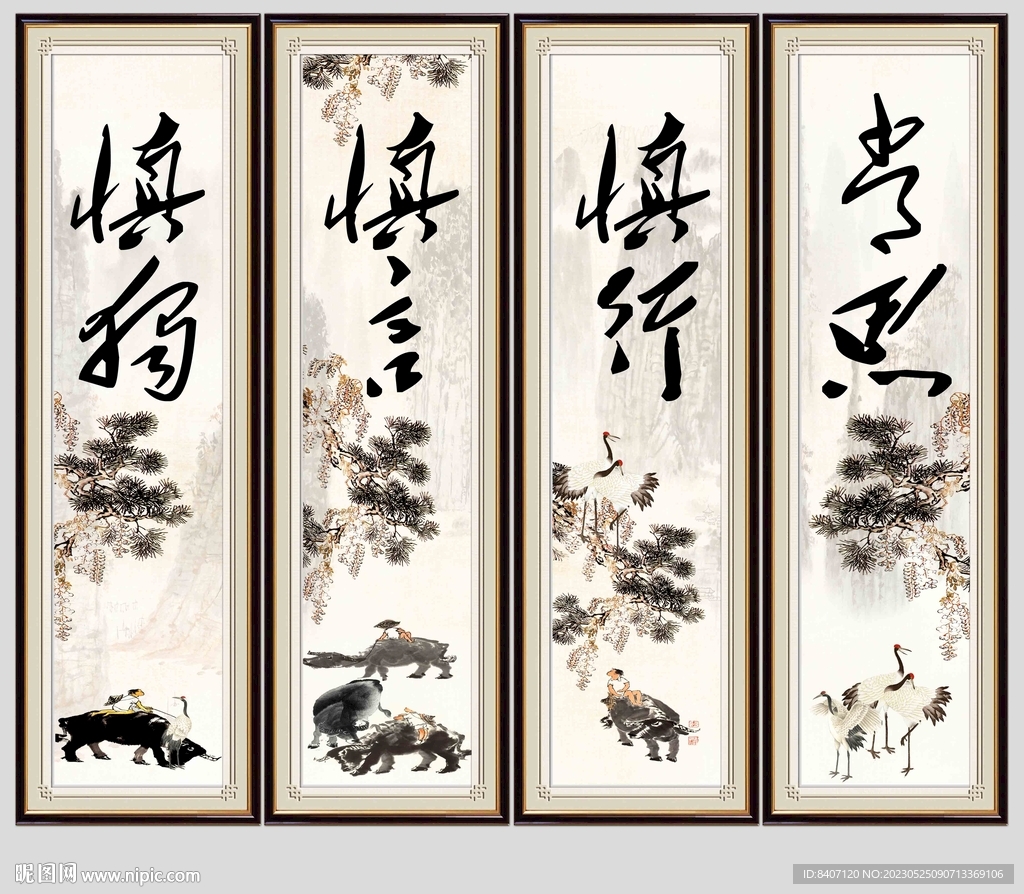 慎獨
慎言
慎行
昵图网 www.nipic.com
ID:8407120 NO:20230525090713369106